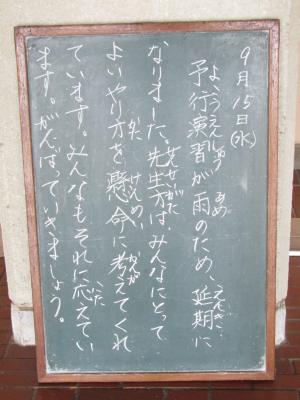 9月15日(水)
予行演習が雨のため、延期に
なりました。先生方は、みんなにとって
よいやり方を懸命に考えてくれ
ています。みんなもそれに応えてい
ます。がんばっていきましょう。